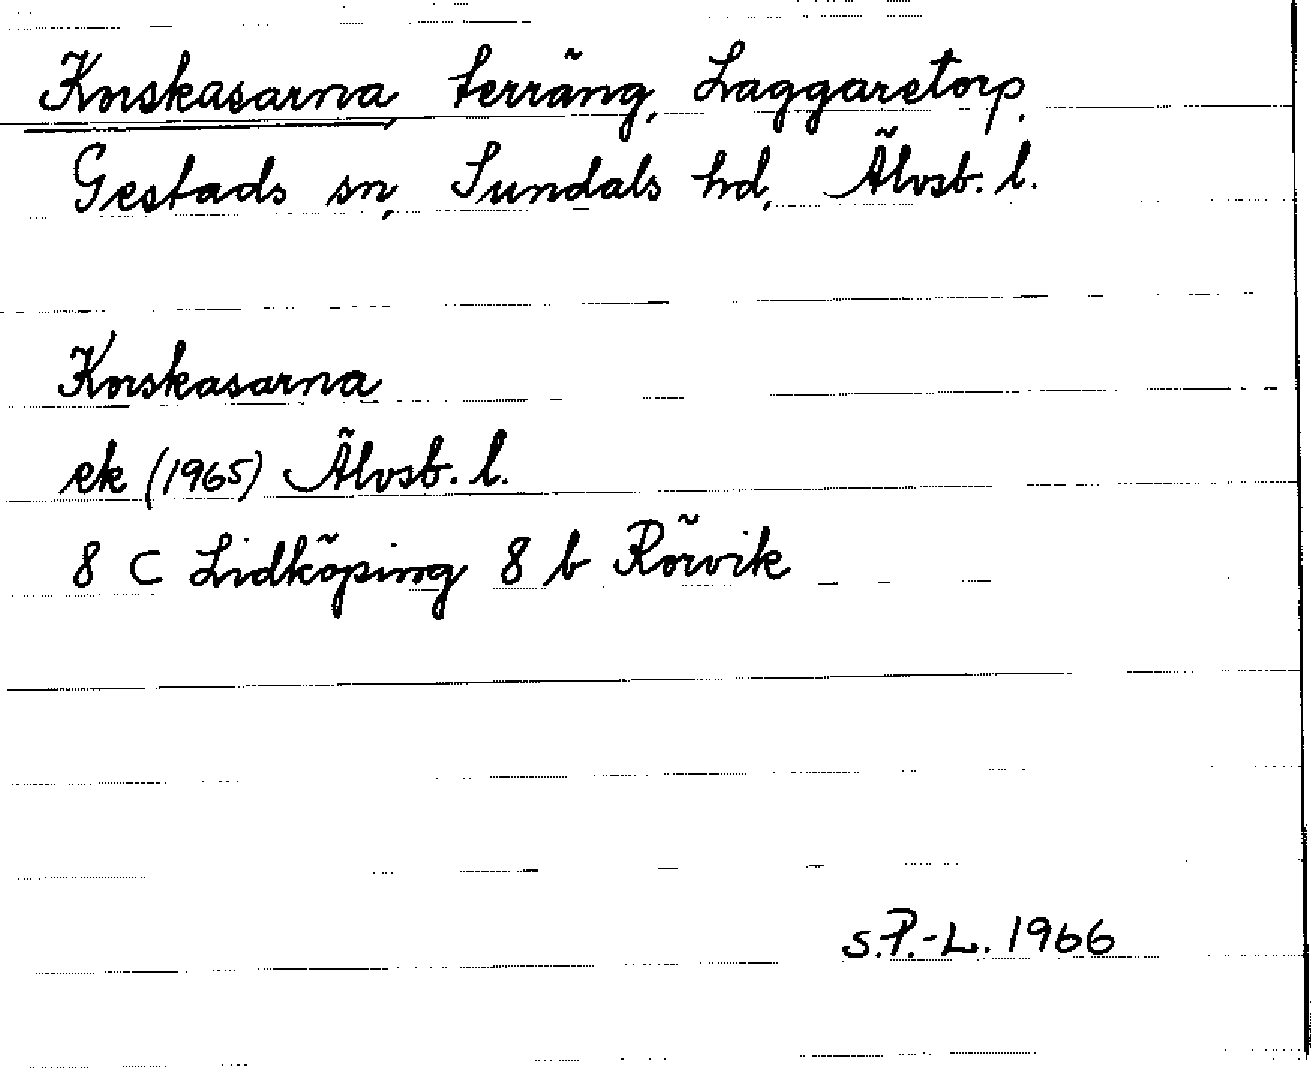 Korskasarna, terräng, Laggaretorp,
Gestads sn, Sundals hd, Älvsb. l.
Korskasarna
ek (1965) Älvsb. l.
8 C Lidköping 8 b Rörvik
S.P.-L. 1966